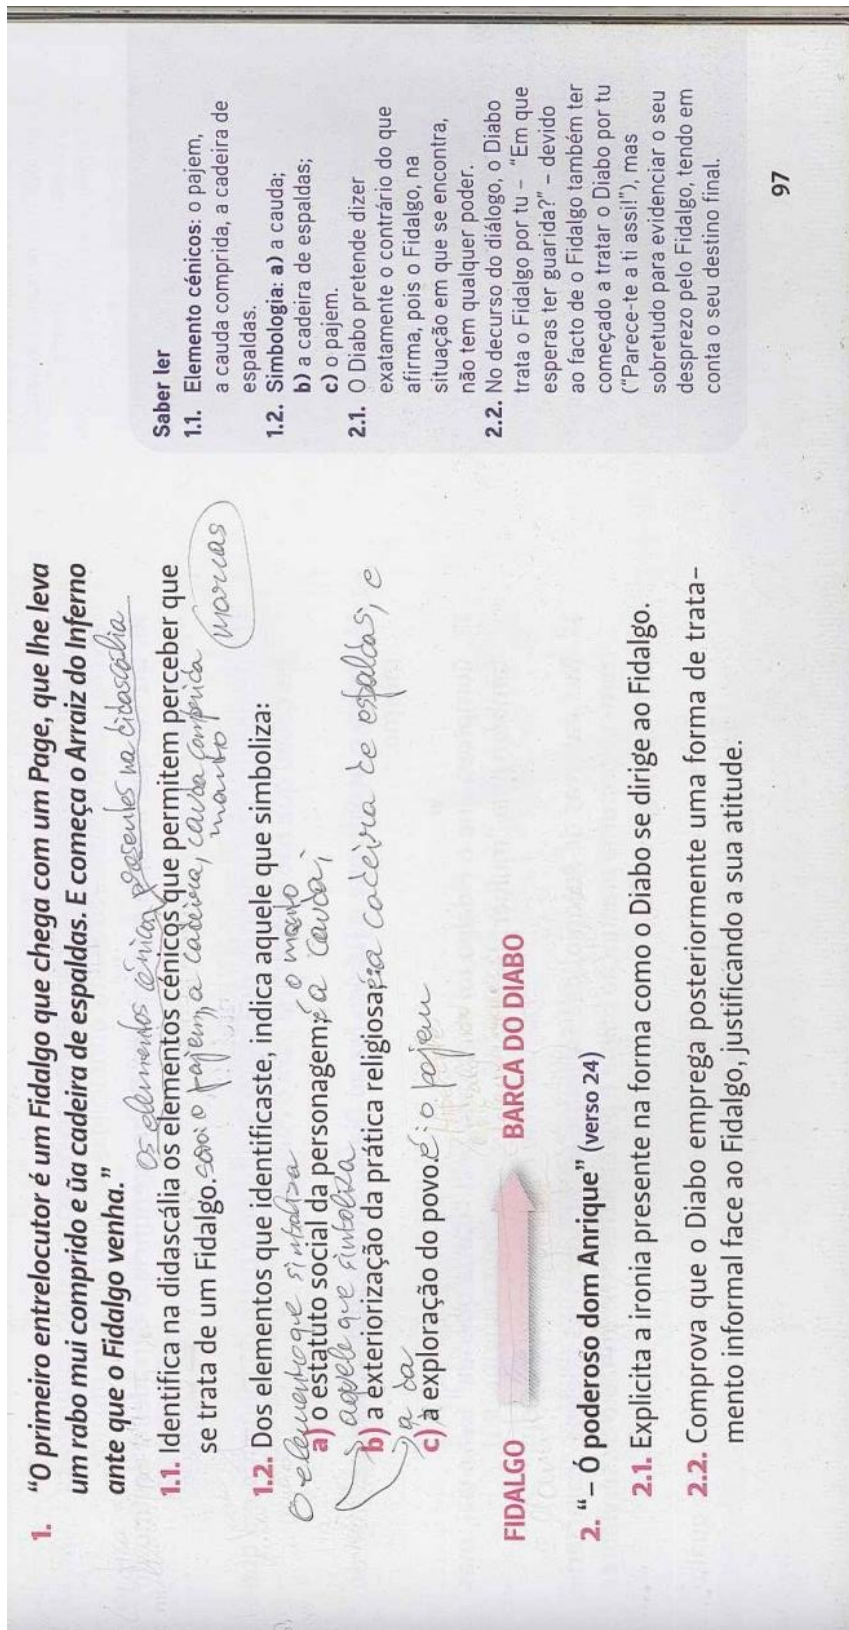 1. “O primeiro entrelocutor é um Fidalgo que chega com um Page, que lhe leva
um rabo mui comprido e ũa cadeira de espaldas. E começa o Arraiz do Inferno
ante que o Fidalgo venha.”
Os elementos cénicos presentes na didascália
1.1. Identifica na didascália os elementos cénicos que permitem perceber que
se trata de um Fidalgo. são: o pajem, a cadeira, cauda comprida
manto
marcas
1.2. Dos elementos que identificaste, indica aquele que simboliza:
O elemento que simboliza o manto
a) o estatuto social da personagem; é a cauda;
aquele que simboliza
b) a exteriorização da prática religiosa; é a cadeira de espaldas; e
a da
c) a exploração do povo. é: o pajem
FIDALGO BARCA DO DIABO
2. “– Ó poderoso dom Anrique” (verso 24)
2.1. Explicita a ironia presente na forma como o Diabo se dirige ao Fidalgo.
2.2. Comprova que o Diabo emprega posteriormente uma forma de trata-
mento informal face ao Fidalgo, justificando a sua atitude.
Saber ler
1.1. Elemento cénicos: o pajem,
a cauda comprida, a cadeira de
espaldas.
1.2. Simbologia: a) a cauda;
b) a cadeira de espaldas;
c) o pajem.
2.1. O Diabo pretende dizer
exatamente o contrário do que
afirma, pois o Fidalgo, na
situação em que se encontra,
não tem qualquer poder.
2.2. No decurso do diálogo, o Diabo
trata o Fidalgo por tu – “Em que
esperas ter guarida?” – devido
ao facto de o Fidalgo também ter
começado a tratar o Diabo por tu
(“Parece-te a ti assi!”), mas
sobretudo para evidenciar o seu
desprezo pelo Fidalgo, tendo em
conta o seu destino final.
97